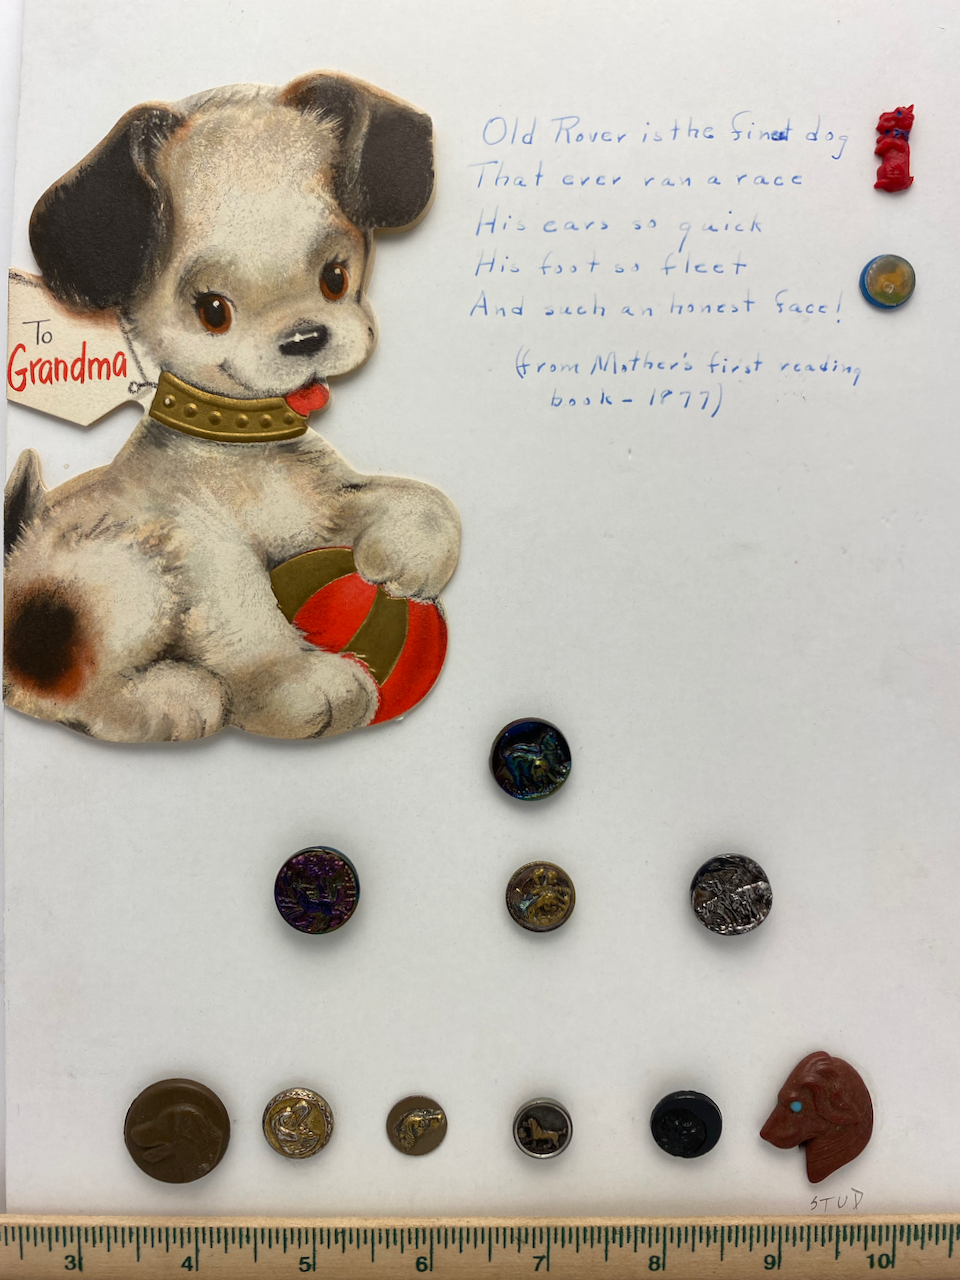 Old Rover is the finest dog
That ever ran a race
His ears so quick
His foot so fleet
And such an honest face!
(from Mother's first reading
book - 1877)
To
Grandma
STUD
3 4 5 6 7 8 9 10